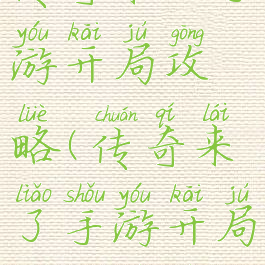 yóu kāi jú gōng
游开局攻
lüè chuán qí lái
略(传奇来
liǎo shǒu yóu kāi jú
了手游开局